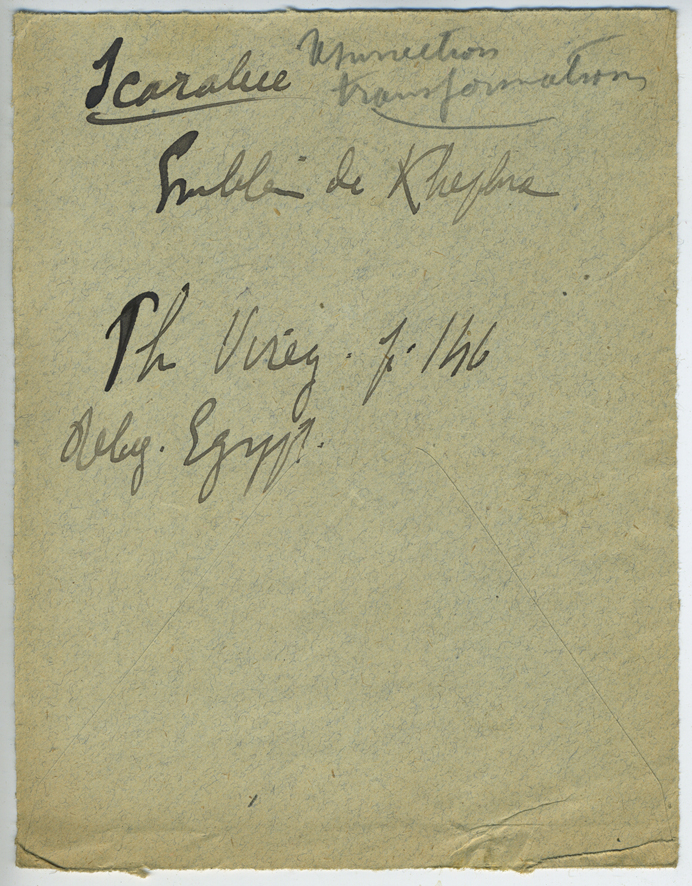 Scarabée Résurrection
transformations
Emblém de Khephra
Ph Virey. p. 146
Relig. Egypt.